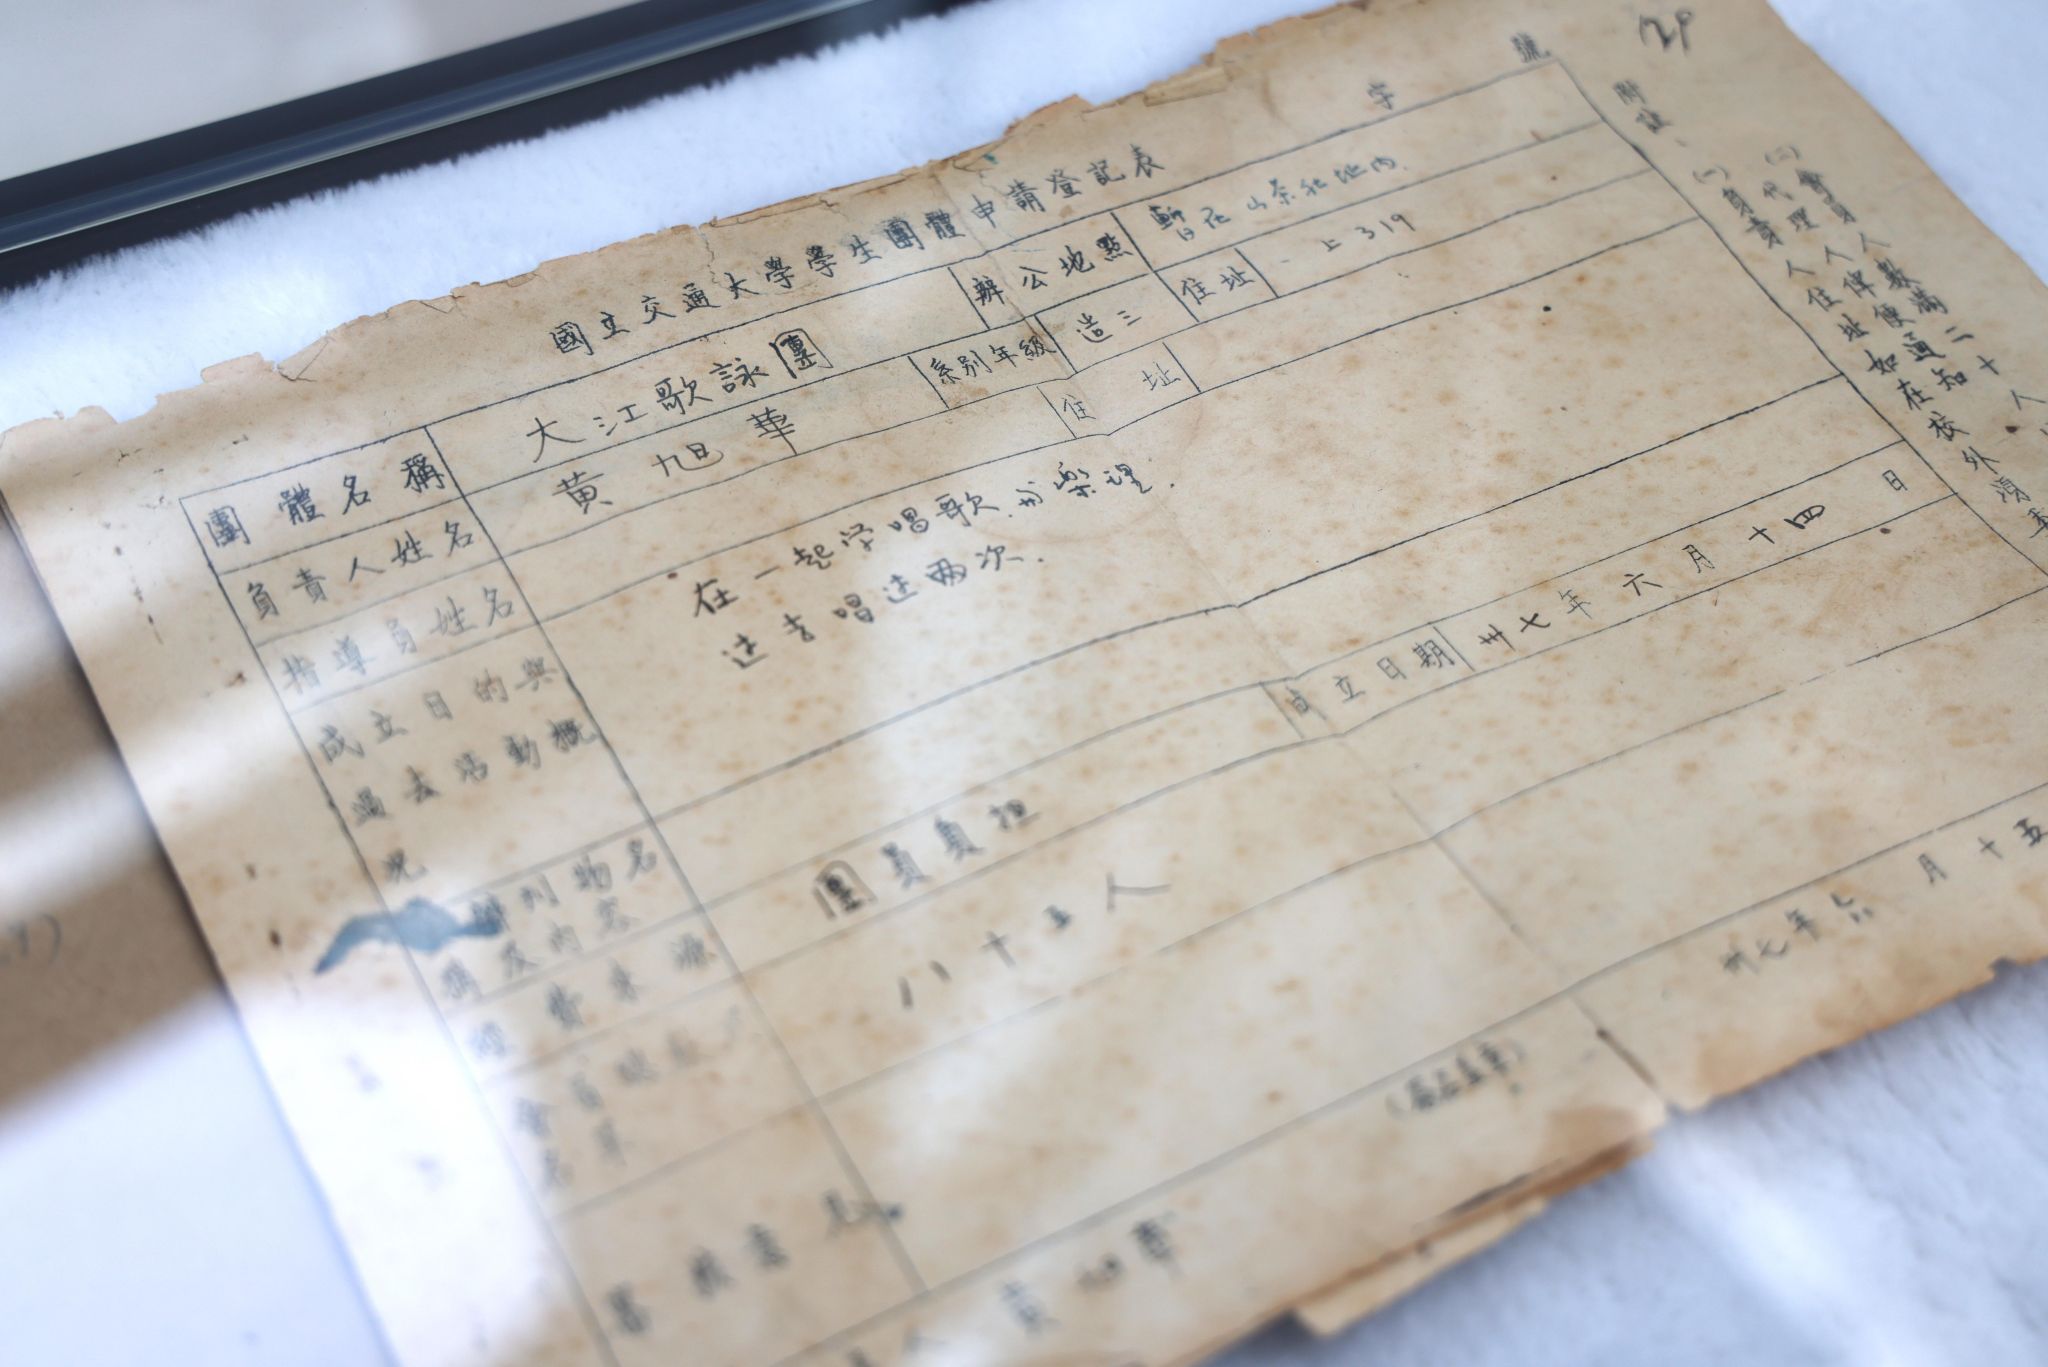 國立交通大學學生團體申請登記表
字 號
團體名稱 大江歌詠團 辦公地點 暫在山茶社地内.
負責人姓名 黄旭華 系别年級 造三 住址 上319
指導員姓名 住址
成立目的與過去活動概況 在一起学唱歌.
过去唱过兩次.
刊物名稱及内容 成立日期 卅七年六月十四日
經費來源 團員負担
八十五人
審核意見
黄旭華
卅七年六月十五
附註
(一)負責人住址如在校外須
代理人俾便通知
(二)會員人數滿二十人